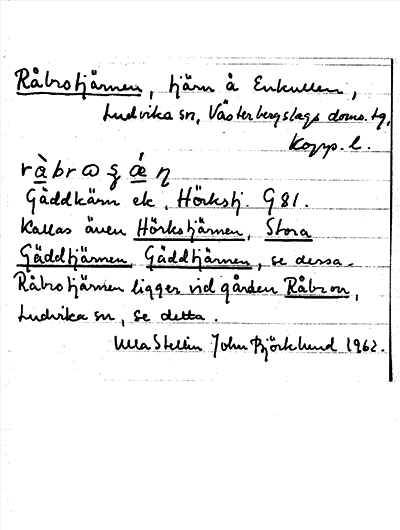 Råbrotjärnen, tjärn å Enkullen,
Ludvika sn, Västerbergslags doms. tg,
Kopp. l.
Gäddkärn ek. Hörkstj. G 81.
Kallas även Hörkstjärnen, Stora
Gäddtjärnen, Gäddtjärnen, se dessa.
Råbrotjärnen ligger vid gården Råbron,
Ludvika sn, se detta.
Ulla Stellin John Björklund 1962.